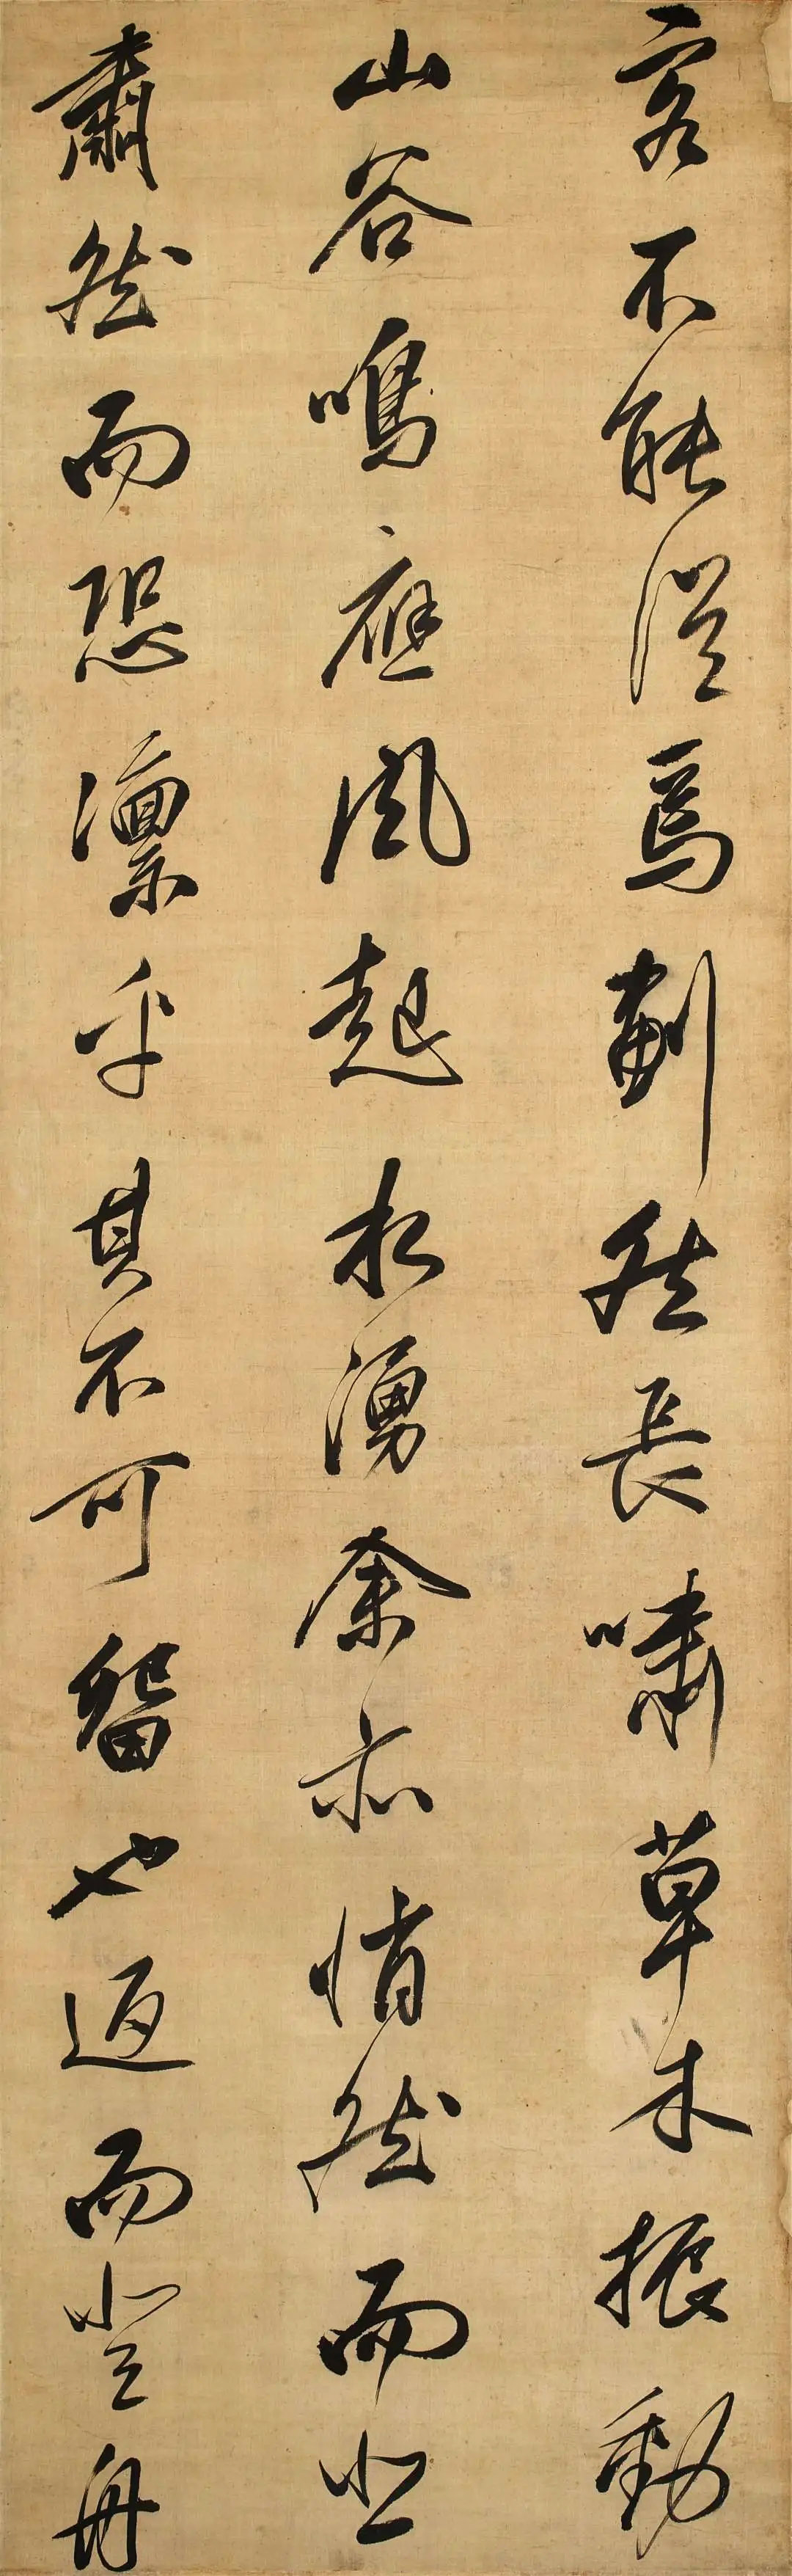 客不能從焉劃然長嘯草木振動
山谷鳴應風起水湧余亦悄然而悲
肅然而恐凛乎其不可留也返而登舟